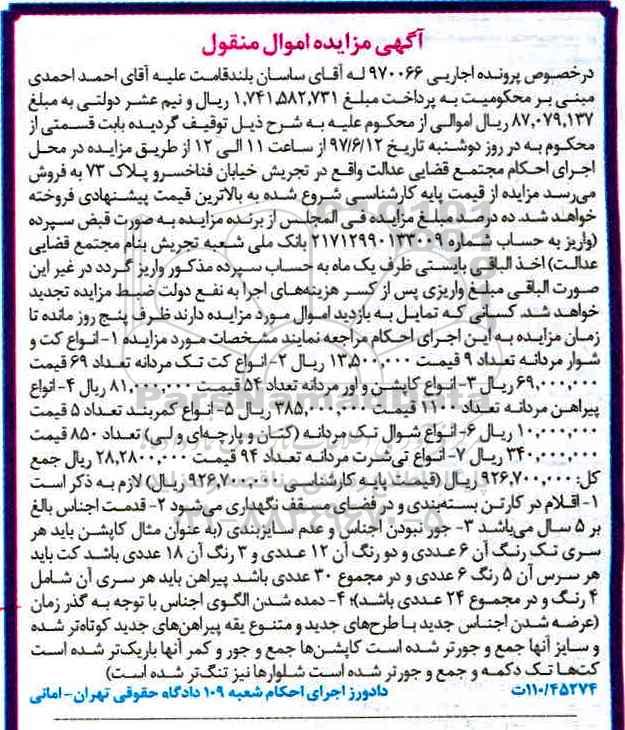 آگهی مزایده اموال منقول
درخصوص پرونده اجاریی ۹۷۰۰۶۶ له آقای ساسان بلندقامت علیه آقای احمد احمدی
مبنی بر محکومیت به پرداخت مبلغ ۱,۷۴۱,۵۸۲,۷۳۱ ریال و نیم عشر دولتی به مبلغ
۸۷,۰۷۹,۱۳۷ ریال اموالی از محکوم علیه به شرح ذیل توقیف گردیده بابت قسمتی از
محکوم به در روز دوشنبه تاریخ ۹۷/۶/۱۲ از ساعت ۱۱ الی ۱۲ از طریق مزایده در محل
اجرای احکام مجتمع قضایی عدالت واقع در تجریش خیابان فناخسرو پلاک ۷۳ به فروش
می‌رسد مزایده از قیمت پایه کارشناسی شروع شده به بالاترین قیمت پیشنهادی فروخته
خواهد شد. ده درصد مبلغ مزایده فی المجلس از برنده مزایده به صورت قبض سپرده
(واریز به حساب شماره ۲۱۷۱۲۹۹۰۱۳۲۰۰۹ بانک ملی شعبه تجریش بنام مجتمع قضایی
عدالت) اخذ الباقی بایستی ظرف یک ماه به حساب سپرده مذکور واریز گردد در غیر این
صورت الباقی مبلغ واریزی پس از کسر هزینه‌های اجرا به نفع دولت ضبط مزایده تجدید
خواهد شد. کسانی که تمایل به بازدید اموال مورد مزایده دارند ظرف پنج روز مانده تا
زمان مزایده به این اجرای احکام مراجعه نمایند مشخصات مورد مزایده ۱- انواع کت و
شوار مردانه تعداد ۹ قیمت ۱۳,۵۰۰,۰۰۰ ریال ۲- انواع کت تک مردانه تعداد ۶۹ قیمت
۶۹,۰۰۰,۰۰۰ ریال ۳- انواع کاپشن و اور مردانه تعداد ۵۴ قیمت ۸۱,۰۰۰,۰۰۰ ریال ۴- انواع
پیراهن مردانه تعداد ۱۱۰۰ قیمت ۳۸۵,۰۰۰,۰۰۰ ریال ۵- انواع کمربند تعداد ۵ قیمت
۱۰,۰۰۰,۰۰۰ ریال ۶- انواع شوال تک مردانه (کتان و پارچه‌ای و لی) تعداد ۸۵۰ قیمت
۳۴۰,۰۰۰,۰۰۰ ریال ۷- انواع تی‌شرت مردانه تعداد ۹۴ قیمت ۲۸,۲۸۰۰,۰۰۰ ریال جمع
کل: ۹۲۶,۷۰۰,۰۰۰ ریال (قیمت پایه کارشناسی ۹۲۶,۷۰۰,۰۰۰ ریال) لازم به ذکر است
۱- اقلام در کارتن بسته‌بندی و در فضای مسقف نگهداری می‌شود ۲- قدمت اجناس بالغ
بر ۵ سال می‌باشد ۳- جور نبودن اجناس و عدم سایزبندی (به عنوان مثال کاپشن باید هر
سری تک رنگ آن ۶ عددی و دو رنگ آن ۱۲ عددی و ۳ رنگ آن ۱۸ عددی باشد کت باید
هر سرس آن ۵ رنگ ۶ عددی و در مجموع ۳۰ عددی باشد پیراهن باید هر سری آن شامل
۴ رنگ و در مجموع ۲۴ عددی باشد)؛ ۴- دمده شدن الگوی اجناس با توجه به گذر زمان
(عرضه شدن اجناس جدید با طرح‌های جدید و متنوع یقه پیراهن‌های جدید کوتاه‌تر شده
و سایز آنها جمع و جورتر شده است کاپشن‌ها جمع و جور و کمر آنها باریک‌تر شده است
کت‌ها تک دکمه و جمع و جورتر شده است شلوارها نیز تنگ‌تر شده است)
۱۱۰/۴۵۲۷۴ت دادورز اجرای احکام شعبه ۱۰۹ دادگاه حقوقی تهران- امانی
ParsNamadData